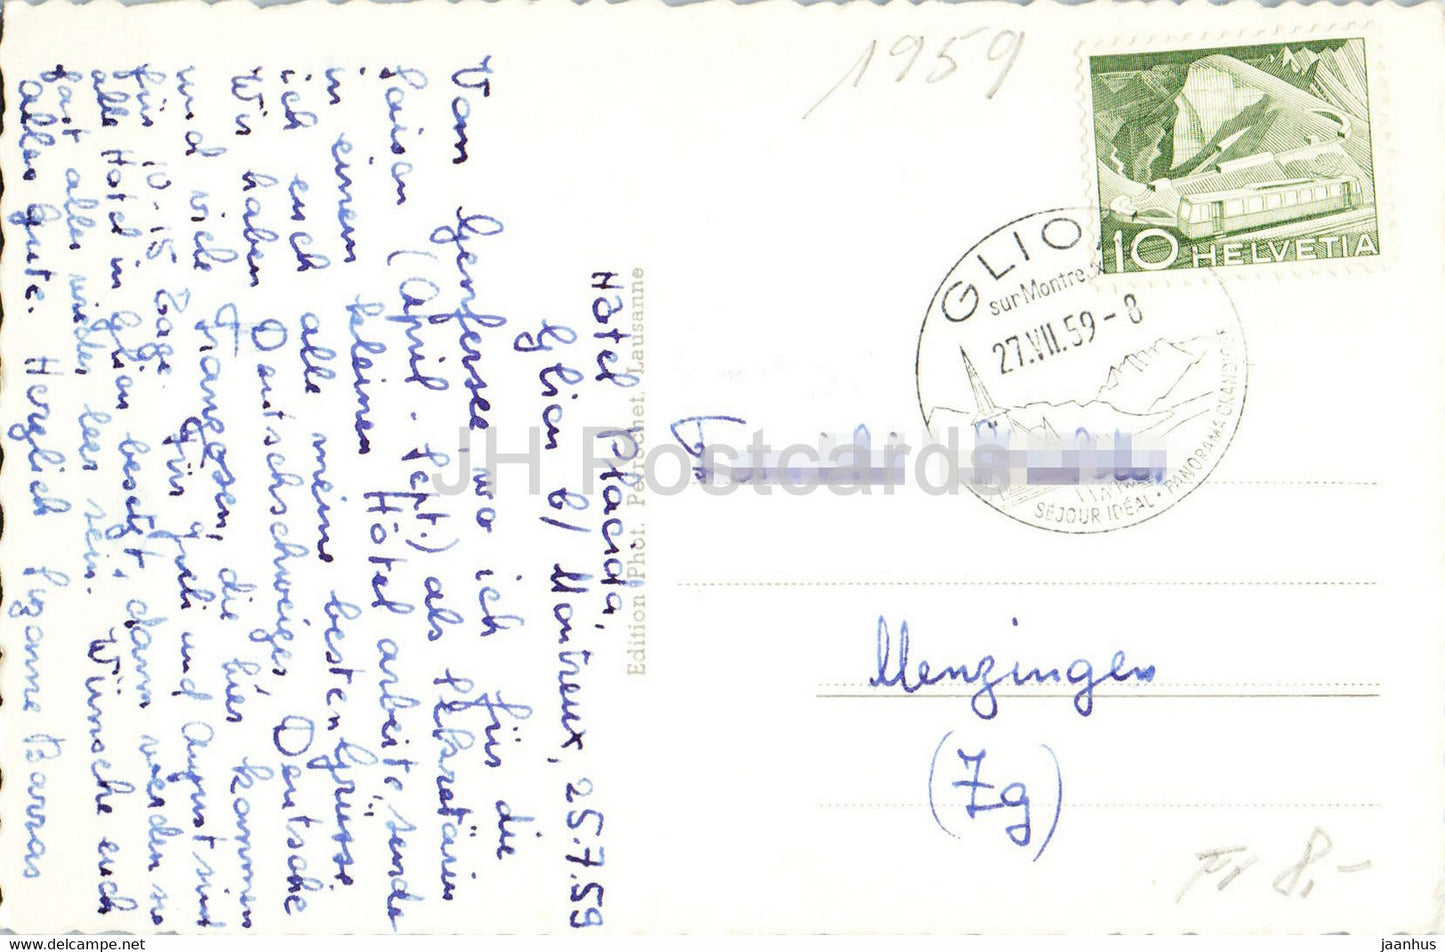 Hôtel Placida,
Glion b/ Montreux, 25.7.59
Vom Genfersee, wo ich für die
Saison (April - Sept.) als Sekretärin
in einem kleinen Hôtel arbeite, sende
ich euch alle meine besten Grüsse
Wir haben Deutschweizer, Deutsche
und viele Franzosen, die hier kommen
für 10-15 Tage. Für Juli und August sind
alle Hotel in Glion besetzt, dann werden sie
fast alles wieder leer sein. Wünsche euch
alles Gute. Herzlich Suzanne Barras
Edition Phot. Perrochet, Lausanne
1959
10 HELVETIA
GLION
sur Montreux
27.VII.59-8
SÉJOUR IDÉAL • PANORAMA GRANDIOSE
JH Postcards
Menzingen
(Zg)
Fr 8.-
www.delcampe.net
jaanhus